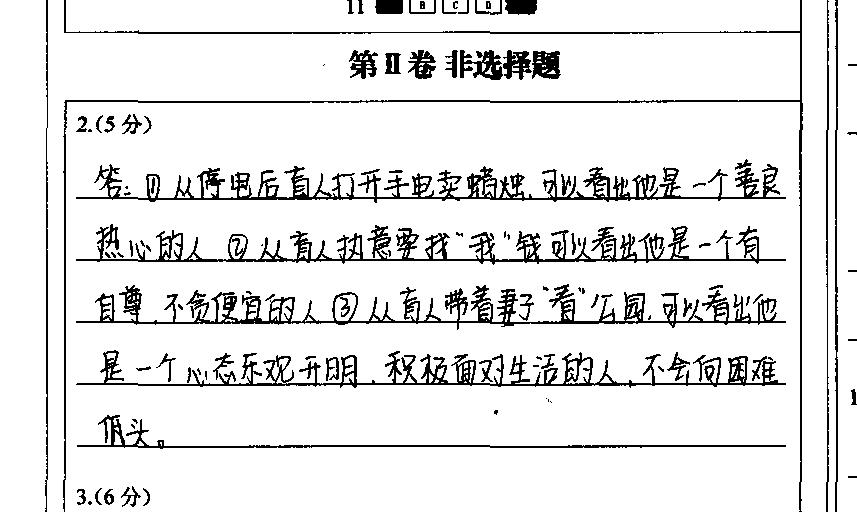 11 B C D
第Ⅱ卷 非选择题
2.(5分)
答：① 从停电后盲人打开手电卖蜡烛,可以看出他是一个善良
热心的人 ② 从盲人执意要找“我”钱可以看出他是一个有
自尊,不贪便宜的人 ③ 从盲人带着妻子“看”公园,可以看出他
是一个心态乐观开明,积极面对生活的人,不会向困难
低头。
3.(6分)